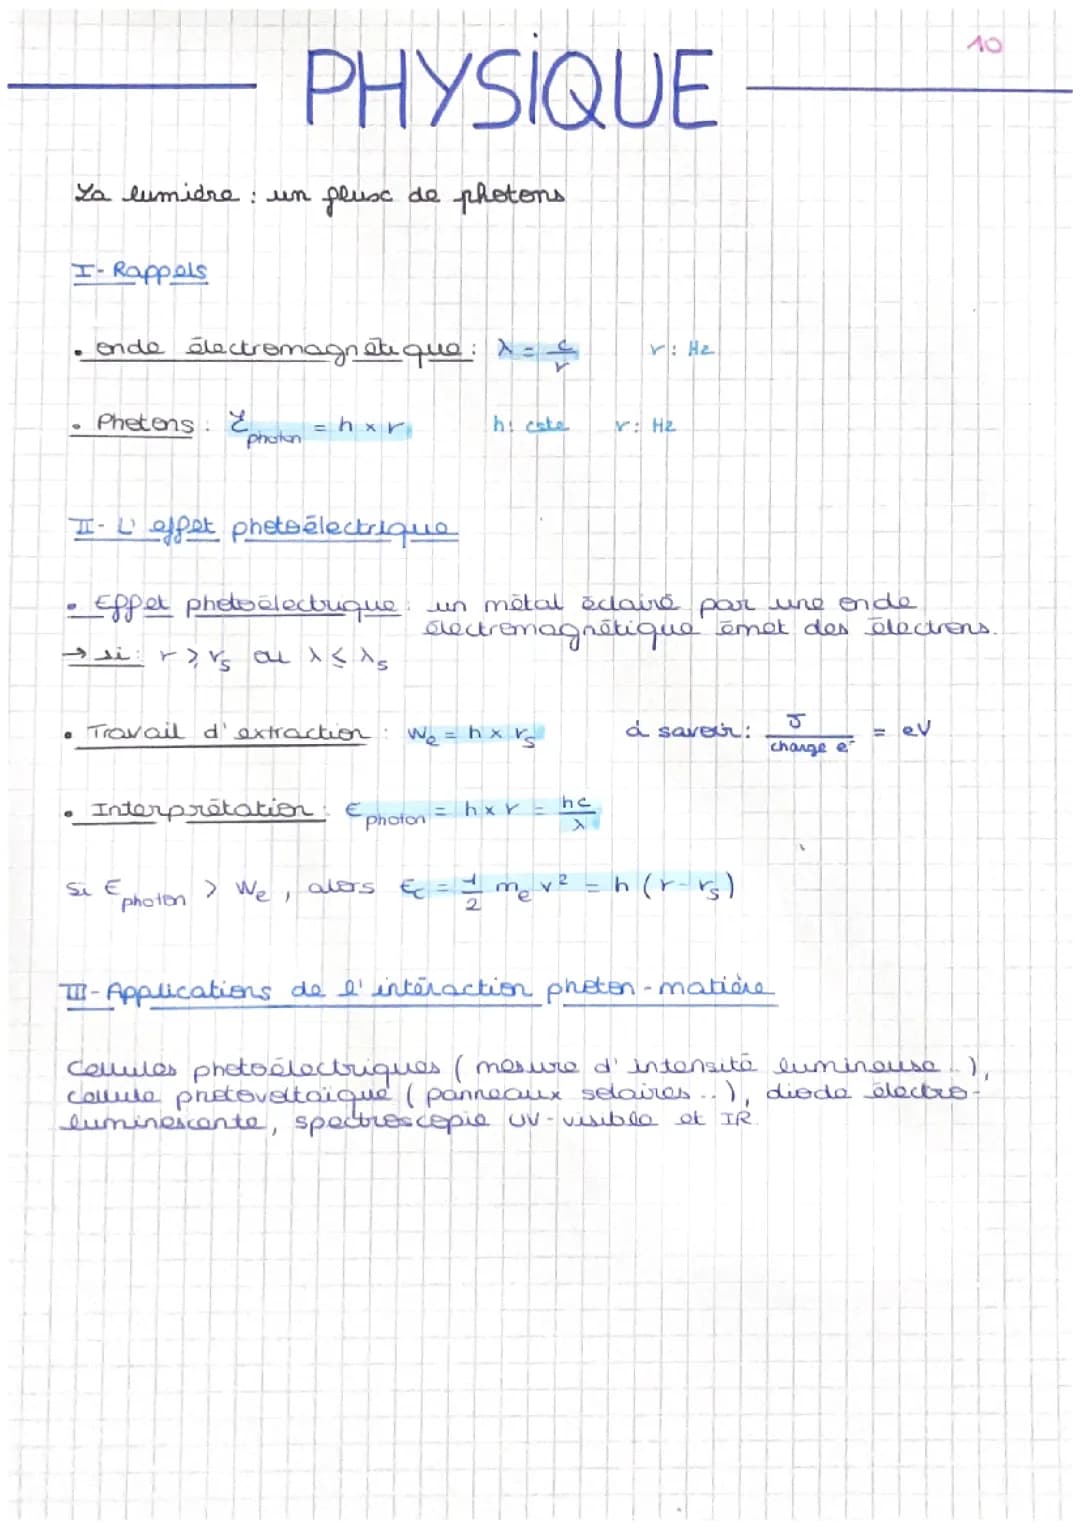 10
PHYSIQUE
La lumière : un flux de photons
I - Rappels
• onde électromagnétique : λ = c/ν    ν : Hz
• Photons : E photon = h × ν    h : cste    ν : Hz
II - L'effet photoélectrique
• Effet photoélectrique : un métal éclairé par une onde
électromagnétique émet des électrons.
→ si : ν ⩾ νs ou λ ⩽ λs
• Travail d'extraction : We = h × νs    à savoir : J/charge e⁻ = eV
• Interprétation : E photon = h × ν = hc/λ
Si E photon > We, alors Ec = 1/2 me v² = h (ν - νs)
III - Applications de l'intéraction photon - matière
Cellules photoélectriques ( mesure d'intensité lumineuse ..),
cellule photovoltaïque ( panneaux solaires ..), diode électro-
luminescente, spectroscopie UV - visible et IR.